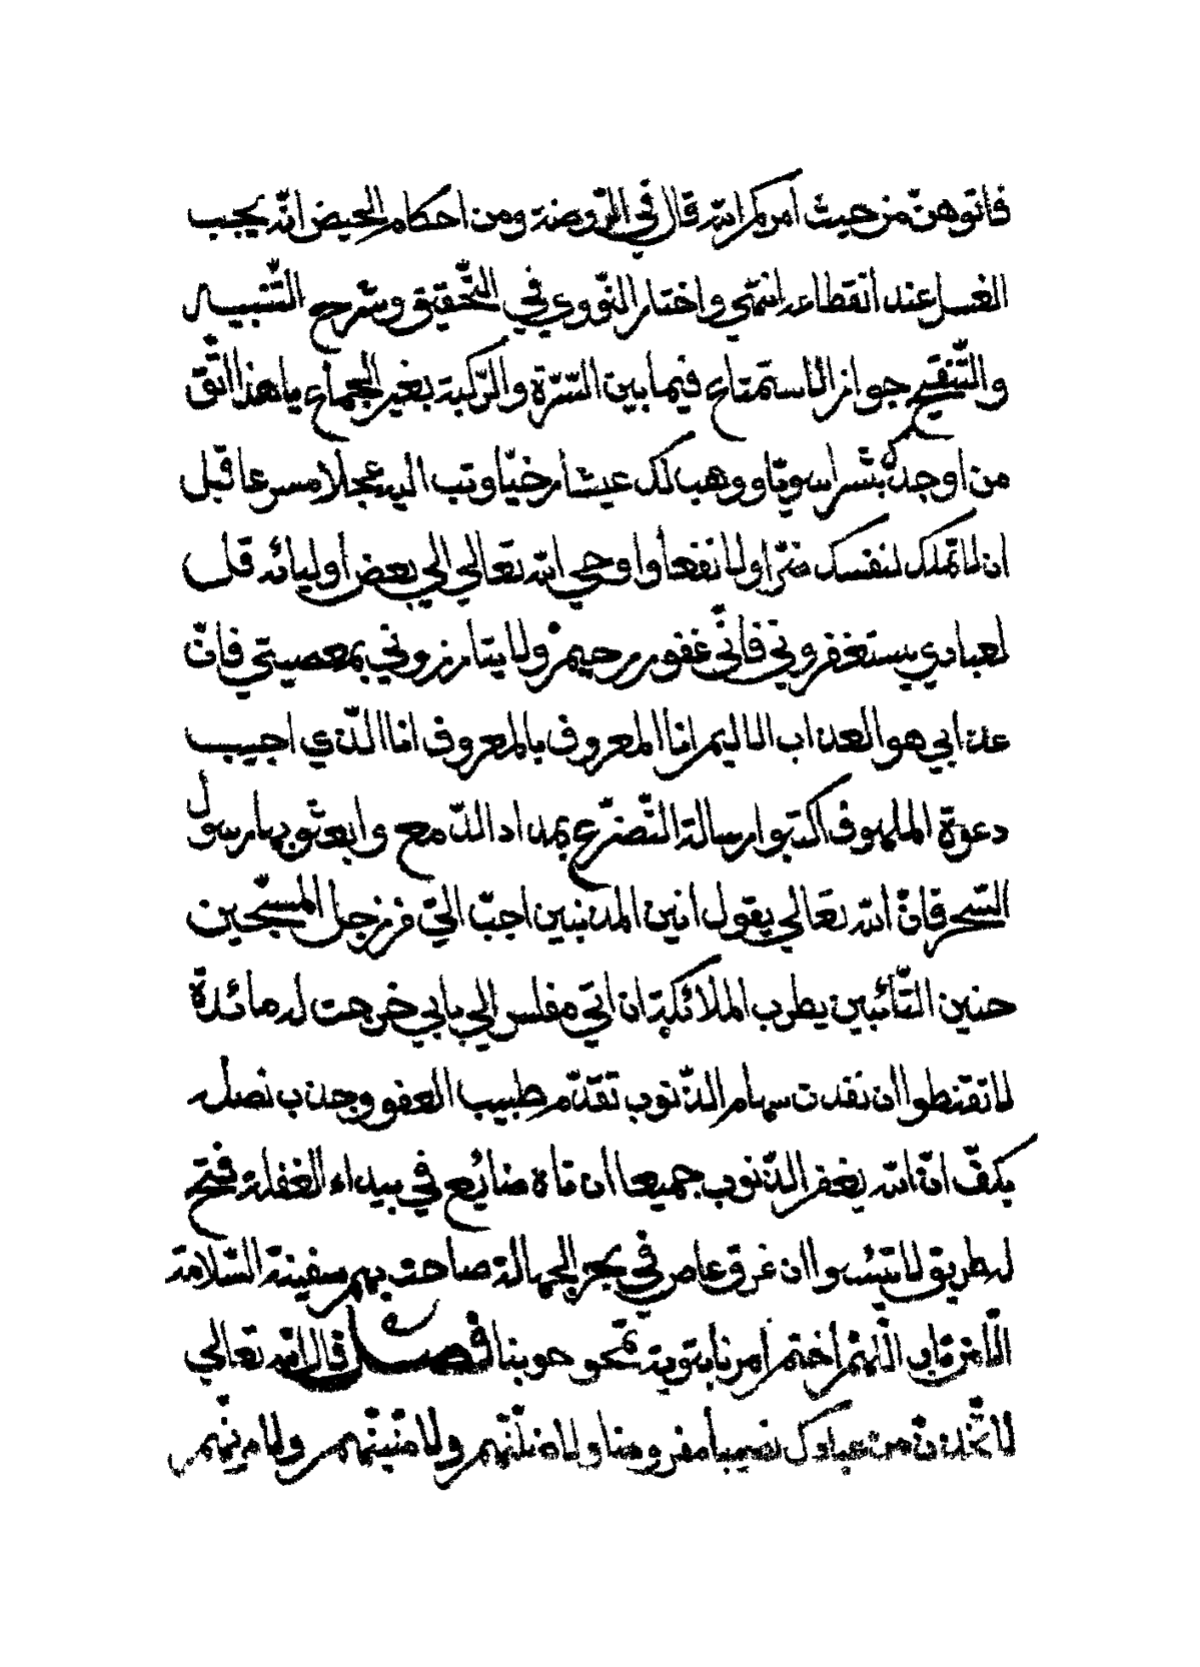 فاتوهنّ من حيث أمركم الله قال في الرّوضة ومن أحكام الحيض انّه يجب
الغسل عند انقطاعه انتهى واختار النّووي في التّحقيق وشرح التّنبيه
والتّنقيح جواز الاستمتاع فيما بين السّرّة والرّكبة بغير الجماع يا هذا اتّق
من اوجدك بشرا سويّا ووهب لك عيشا رخيّا وتب اليه عجلا مسرعا قبل
ان لا تملك لنفسك ضرّا ولا نفعا واوحى الله تعالى الى بعض أوليائه قل
لعبادي يستغفروني فانّي غفور رحيم ولا يتارزوني بمعصيتي فانّ
عذابي هو العذاب الاليم انا المعروف بالمعروف انا الّذي اجيب
دعوة الملهوف اكتبوا رسالة التّضرّع بمداد الدّمع وابعثوا بها رسول
السّحر فانّ الله تعالى يقول أنين المذنبين احبّ اليّ من زجل المسبّحين
حنين التّائبين يطرب الملائكة ان اتى مفلس الى بابي خرجت له مائدة
لا تقنطوا ان نفدت سهام الذّنوب تقدّم طبيب العفو وجذب نصله
بكفّ انّ الله يغفر الذّنوب جميعا ان تاه ضائع في بيداء الغفلة فتح
له طريق لا تيئسوا ان غرق عاص في بحر الجهالة صاحت بهم سفينة السّلامة
الّا من تاب اللّهمّ اختم أمرنا بتوبة تمحو حوبنا فصل قال الله تعالى
لاتّخذنّ من عبادك نصيبا مفروضا ولاضلّنّهم ولامنّينّهم ولامرنّهم